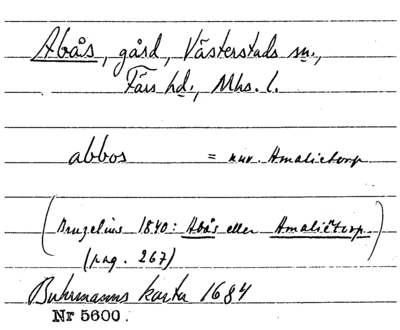 Abås, gård, Västerstads sn.,
Färs hd., Mhs. l.
abbos = nuv. Amalietorp
(Bruzelius 1840: Abås eller Amalietorp.)
(pag. 267)
Buhrmanns karta 1684
Nr 5600.